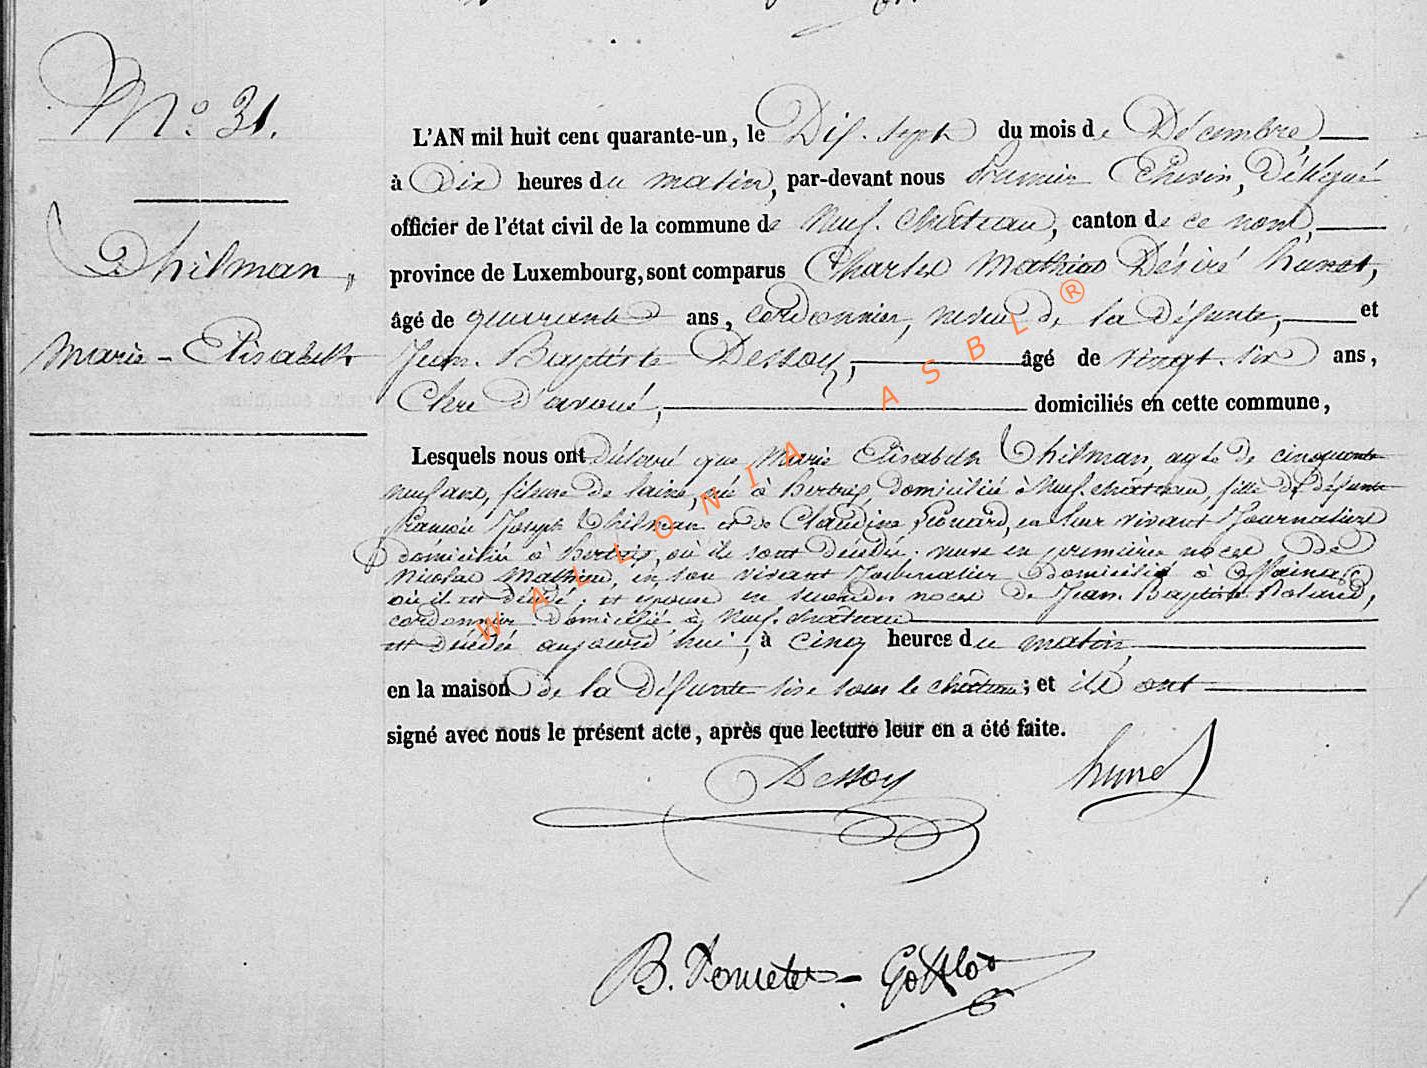 N.º 31.
Thilman,
Marie-Elisabeth
L'AN mil huit cent quarante-un, le Dix-sept du mois de Décembre,
à Dix heures du matin, par-devant nous Premier Echevin, Délégué
officier de l'état civil de la commune de Neuf-château, canton de ce nom,
province de Luxembourg, sont comparus Charles Mathias Désiré
âgé de quarante ans, cordonnier, neveu de la Défunte, et
Jean-Baptiste Dessoy, âgé de vingt-six ans,
Clerc d'avoué, domiciliés en cette commune,
Lesquels nous ont déclaré que Marie Elisabeth Thilman, agée de cinquante
neuf ans, fileuse de laine, née à Bertrix, domiciliée à Neuf-château, fille de défunts
François Joseph Thilman et de Claudine, en leur vivant Journaliers
domiciliés à Bertrix, où ils sont Décédés; veuve en première noces De
Nicolas Mathieu, en son vivant Journalier Domicilié à
où il est décédé; et épouse en secondes noces de Jean-Baptiste Roland,
cordonnier Domicilié à Neuf-château
est décédée aujourd'hui, à cinq heures du matin,
en la maison de la Défunte sise sous le château; et ils ont
signé avec nous le présent acte, après que lecture leur en a été faite.
Dessoy
B.
WALLONIA ASBL ®